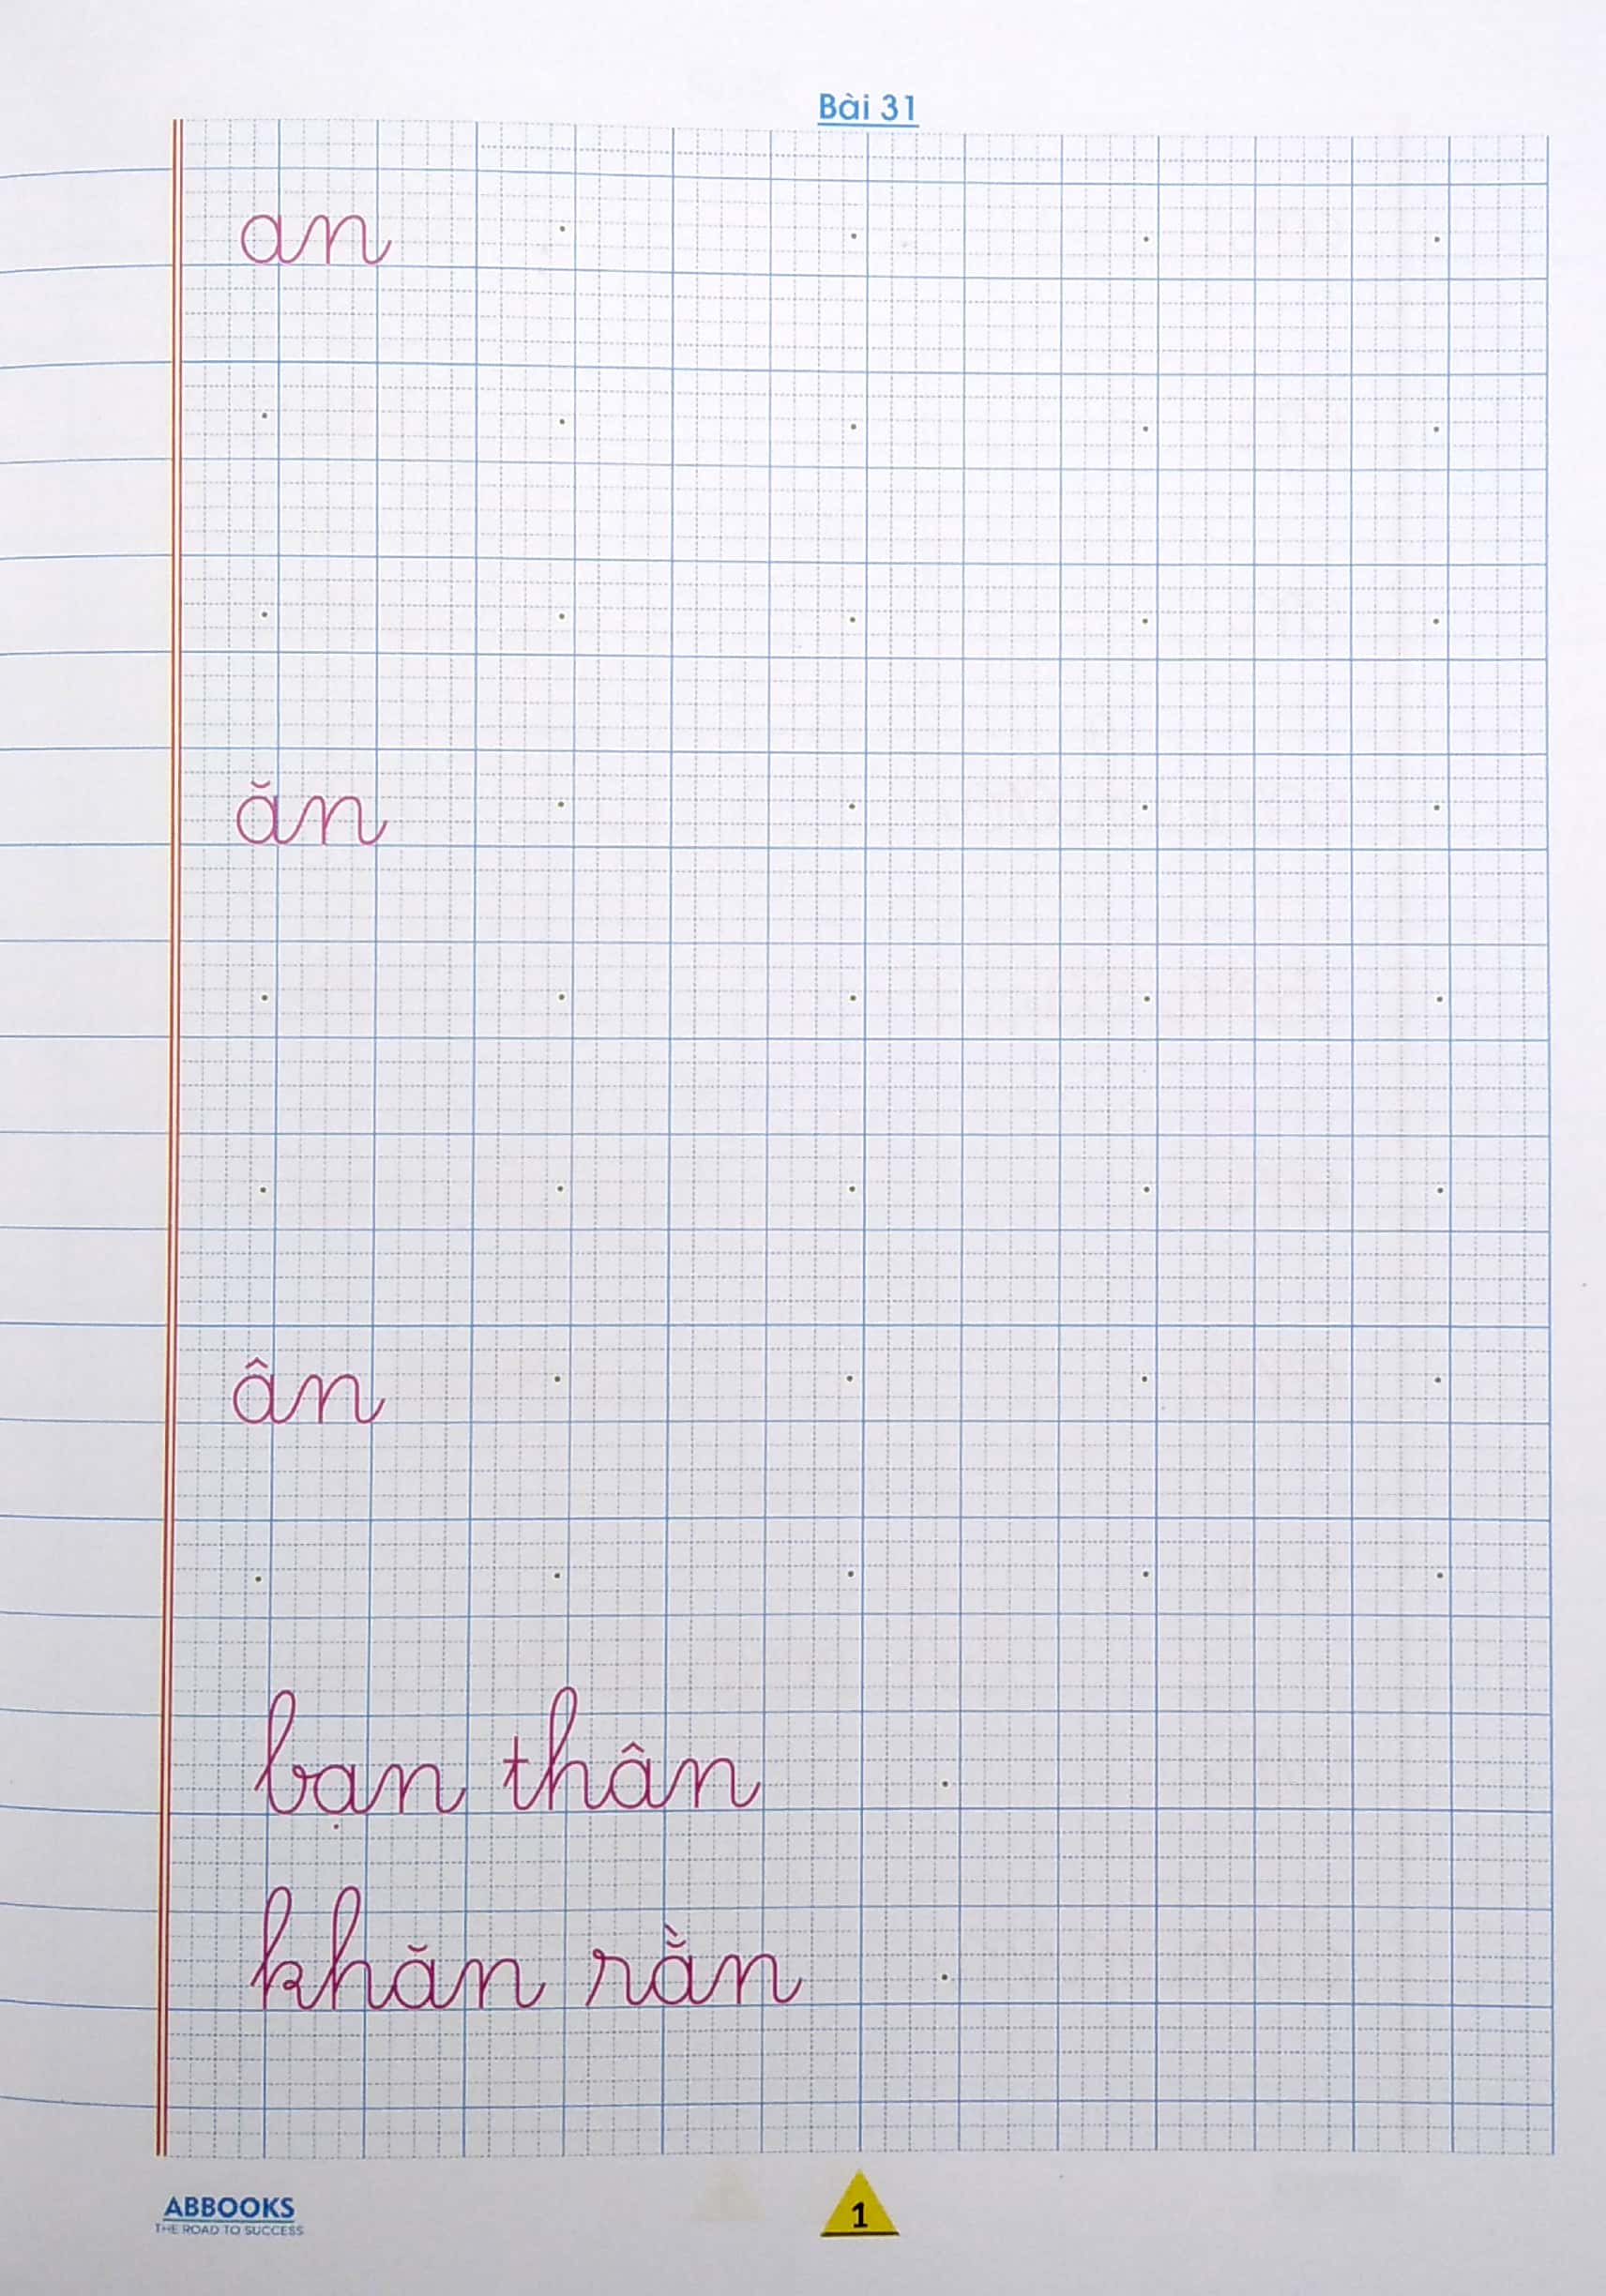 Bài 31
an
ăn
ân
bạn thân
khăn rằn
ABBOOKS
THE ROAD TO SUCCESS
1